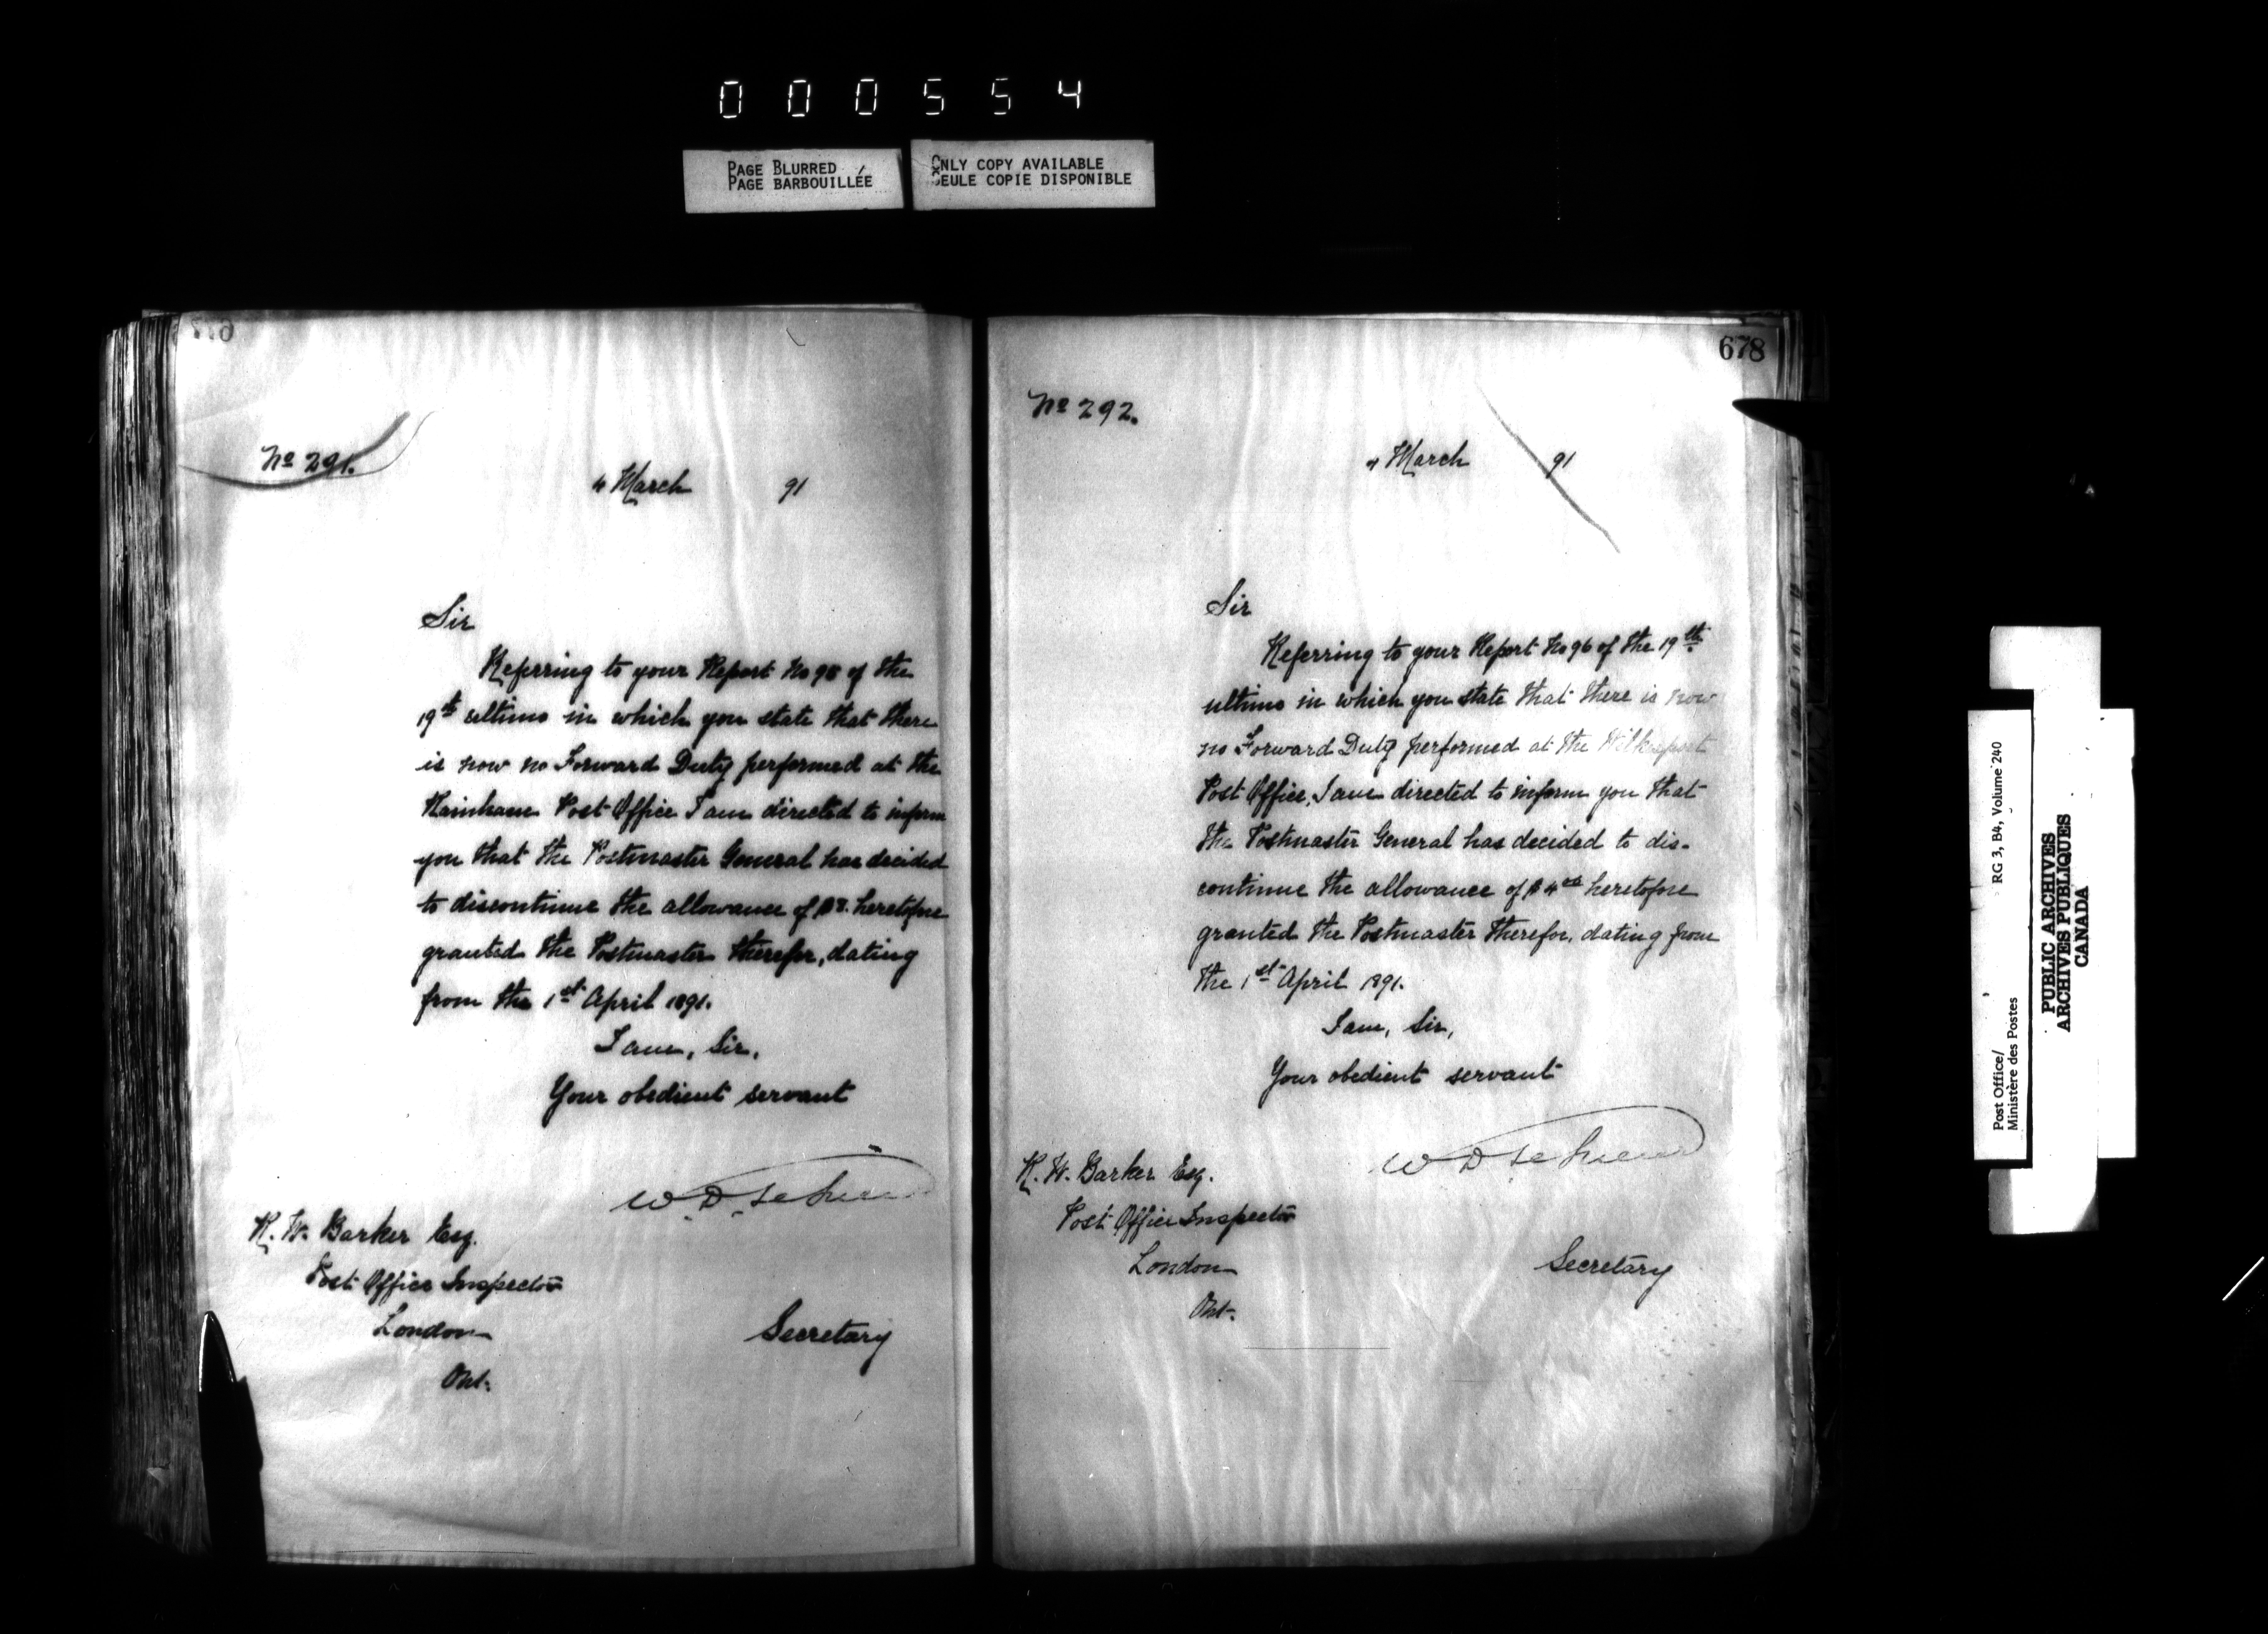 000554
PAGE BLURRED
PAGE BARBOUILLÉE
ONLY COPY AVAILABLE
SEULE COPIE DISPONIBLE
No 291.
4 March 91
Sir
Referring to your Report No of the
19th ultimo in which you state that there
is now no Forward Duty performed at the
Rainham Post Office I am directed to inform
you that the Postmaster General has decided
to discontinue the allowance of heretofore
granted the Postmaster therefor, dating
from the 1st April 1891.
I am, Sir,
Your obedient servant
W. D. LeSueur
R. W. Barker Esq.
Post Office Inspector
London
Ont.
Secretary
678
No 292.
4 March 91
Sir
Referring to your Report No 96 of the 19th
ultimo in which you state that there is now
no Forward Duty performed at the Wilkesport
Post Office, I am directed to inform you that
the Postmaster General has decided to dis-
continue the allowance of $4 00 heretofore
granted the Postmaster therefor, dating from
the 1st April 1891.
I am, Sir,
Your obedient servant
W D LeSueur
R. W. Barker Esq.
Post Office Inspector
London
Ont.
Secretary
Post Office/ RG 3, B4, Volume 240
Ministère des Postes
PUBLIC ARCHIVES
ARCHIVES PUBLIQUES
CANADA